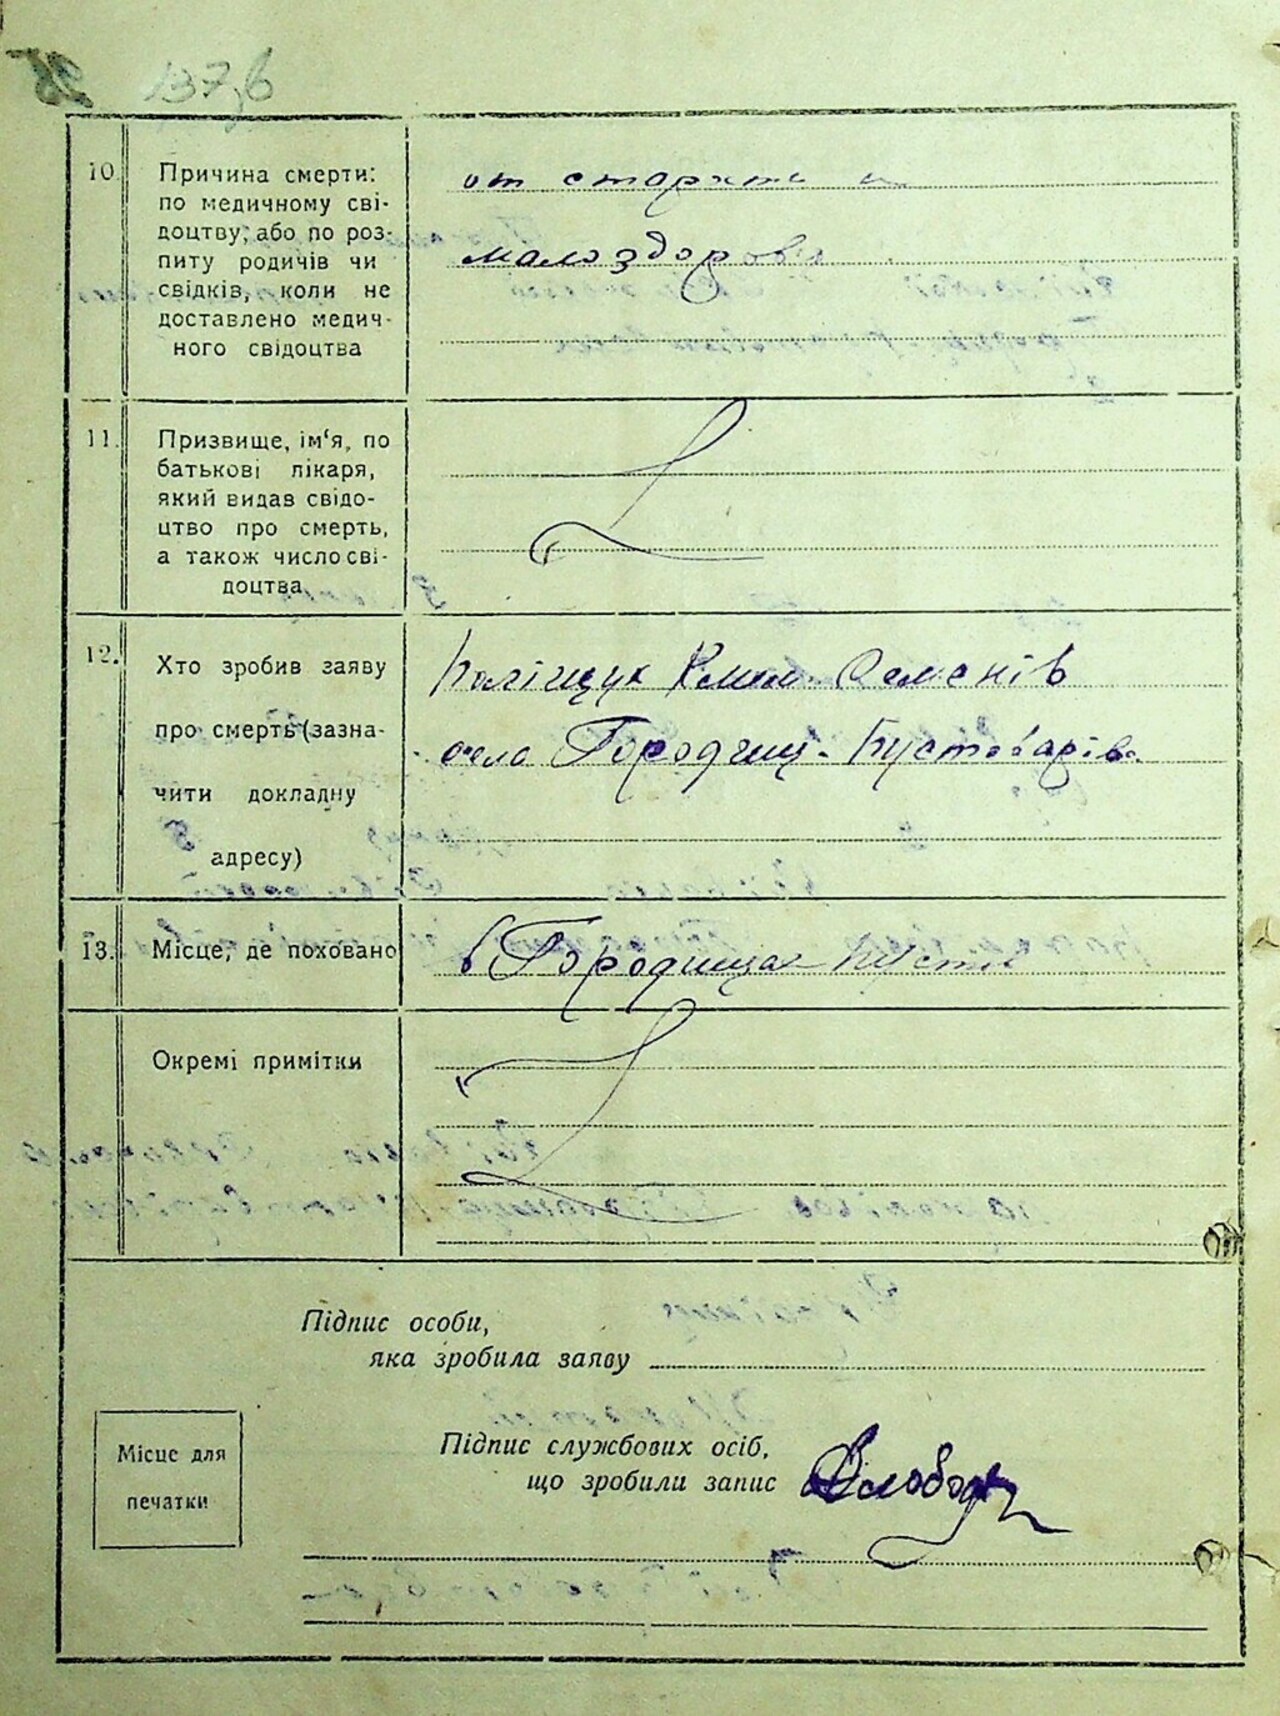 137,б
10. Причина смерти:
по медичному сві-
доцтву, або по роз-
питу родичів чи
свідків, коли не
доставлено медич-
ного свідоцтва
от
малоздоров'я
11. Призвище, ім'я, по
батькові лікаря,
який видав свідо-
цтво про смерть,
а також число сві-
доцтва
12. Хто зробив заяву
про смерть (зазна-
чити докладну
адресу)
Поліщук Семенів
село Городищ-Пустоварів.
13. Місце, де поховано
в Городищах Пусто
Окремі примітки
Підпис особи,
яка зробила заяву
Місце для
печатки
Підпис службових осіб,
що зробили запис